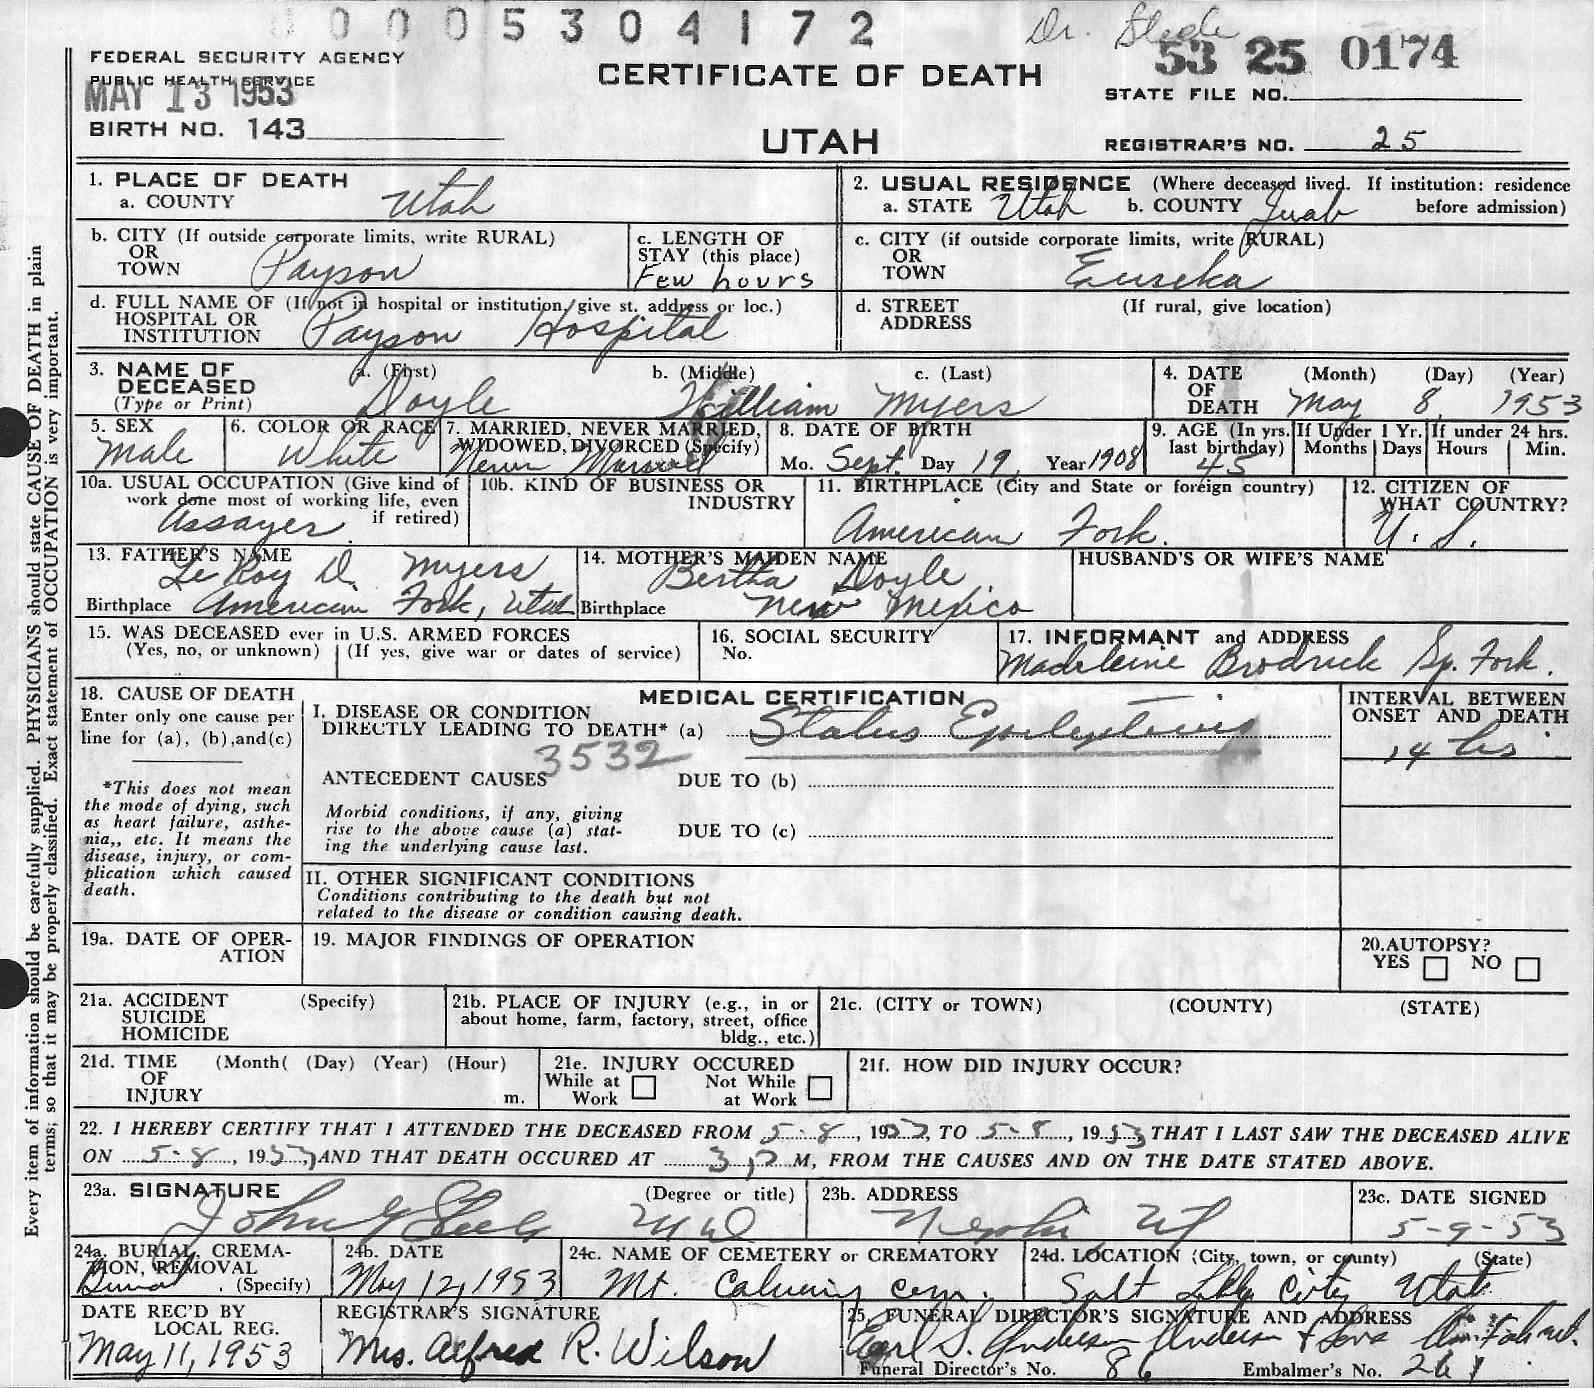 0 0 0 5 3 0 4 1 7 2
Dr. Steele
FEDERAL SECURITY AGENCY
PUBLIC HEALTH SERVICE
MAY 13 1953
BIRTH NO. 143
CERTIFICATE OF DEATH
UTAH
53 25 0174
STATE FILE NO.
REGISTRAR'S NO. 25
1. PLACE OF DEATH
a. COUNTY Utah
2. USUAL RESIDENCE (Where deceased lived. If institution: residence before admission)
a. STATE Utah b. COUNTY Juab
b. CITY (If outside corporate limits, write RURAL)
OR
TOWN Payson
c. LENGTH OF
STAY (this place)
Few hours
c. CITY (if outside corporate limits, write RURAL)
OR
TOWN Eureka
d. FULL NAME OF (If not in hospital or institution, give st. address or loc.)
HOSPITAL OR
INSTITUTION Payson Hospital
d. STREET (If rural, give location)
ADDRESS
3. NAME OF
DECEASED
(Type or Print)
a. (First) b. (Middle) c. (Last)
Doyle William Myers
4. DATE (Month) (Day) (Year)
OF
DEATH May 8, 1953
5. SEX
Male
6. COLOR OR RACE
White
7. MARRIED, NEVER MARRIED,
WIDOWED, DIVORCED (Specify)
Never Married
8. DATE OF BIRTH
Mo. Sept. Day 19, Year 1908
9. AGE (In yrs. last birthday)
45
If Under 1 Yr.
Months Days
If under 24 hrs.
Hours Min.
10a. USUAL OCCUPATION (Give kind of
work done most of working life, even
if retired)
Assayer
10b. KIND OF BUSINESS OR
INDUSTRY
11. BIRTHPLACE (City and State or foreign country)
American Fork.
12. CITIZEN OF
WHAT COUNTRY?
U. S.
13. FATHER'S NAME
Le Roy D. Myers
Birthplace American Fork, Utah
14. MOTHER'S MAIDEN NAME
Bertha Doyle
Birthplace New Mexico
HUSBAND'S OR WIFE'S NAME
15. WAS DECEASED ever in U.S. ARMED FORCES
(Yes, no, or unknown) (If yes, give war or dates of service)
16. SOCIAL SECURITY
No.
17. INFORMANT and ADDRESS
Madeleine Brodrick Sp. Fork.
18. CAUSE OF DEATH
Enter only one cause per
line for (a), (b), and (c)
*This does not mean
the mode of dying, such
as heart failure, asthe-
nia,, etc. It means the
disease, injury, or com-
plication which caused
death.
MEDICAL CERTIFICATION
I. DISEASE OR CONDITION
DIRECTLY LEADING TO DEATH* (a) Status Epilepticus
3532
ANTECEDENT CAUSES DUE TO (b)
Morbid conditions, if any, giving
rise to the above cause (a) stat-
ing the underlying cause last.
DUE TO (c)
INTERVAL BETWEEN
ONSET AND DEATH
14 hrs
II. OTHER SIGNIFICANT CONDITIONS
Conditions contributing to the death but not
related to the disease or condition causing death.
19a. DATE OF OPER-
ATION
19. MAJOR FINDINGS OF OPERATION
20. AUTOPSY?
YES NO
21a. ACCIDENT (Specify)
SUICIDE
HOMICIDE
21b. PLACE OF INJURY (e.g., in or
about home, farm, factory, street, office
bldg., etc.)
21c. (CITY or TOWN) (COUNTY) (STATE)
21d. TIME (Month( (Day) (Year) (Hour)
OF
INJURY m.
21e. INJURY OCCURED
While at Work Not While at Work
21f. HOW DID INJURY OCCUR?
22. I HEREBY CERTIFY THAT I ATTENDED THE DECEASED FROM 5-8, 1953, TO 5-8, 1953 THAT I LAST SAW THE DECEASED ALIVE
ON 5-8, 1953, AND THAT DEATH OCCURED AT M, FROM THE CAUSES AND ON THE DATE STATED ABOVE.
23a. SIGNATURE (Degree or title)
John G Steele MD
23b. ADDRESS
Nephi, Ut
23c. DATE SIGNED
5-9-53
24a. BURIAL, CREMA-
TION, REMOVAL
Burial (Specify)
24b. DATE
May 12, 1953
24c. NAME OF CEMETERY or CREMATORY
Mt. Calvary cem.
24d. LOCATION (City, town, or county) (State)
Salt Lake City Utah
DATE REC'D BY
LOCAL REG.
May 11, 1953
REGISTRAR'S SIGNATURE
Mrs. Alfred R. Wilson
25. FUNERAL DIRECTOR'S SIGNATURE AND ADDRESS
Earl S. Anderson Anderson & Sons Am. Fork ut.
Funeral Director's No. 86 Embalmer's No. 261
Every item of information should be carefully supplied. PHYSICIANS should state CAUSE OF DEATH in plain
terms; so that it may be properly classified. Exact statement of OCCUPATION is very important.